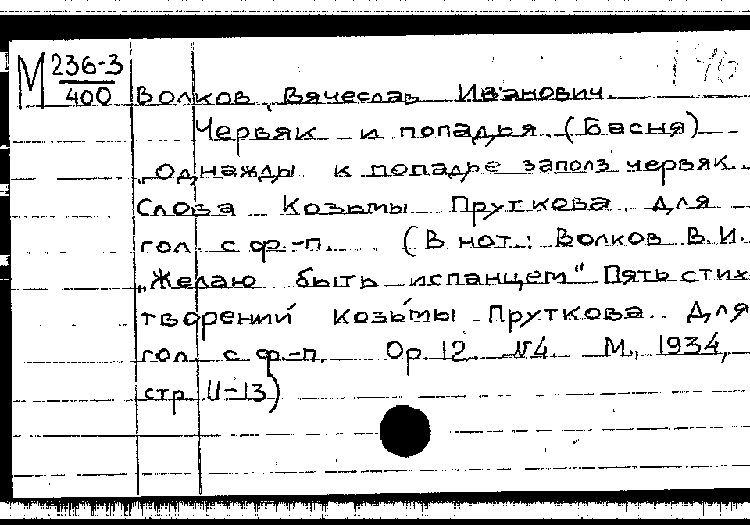 М 236-3
400
196
Волков, Вячеслав Иванович.
Червяк и попадья. (Басня)
„Однажды к попадье заполз червяк.
Слова Козьмы Пруткова. Для
гол. с ф.-п. (В нот.: Волков В.И.
„Желаю быть испанцем" Пять стих
творений Козьмы Пруткова. Для
гол. с ф.-п. Ор. 12. №4. М., 1934,
стр. 11-13)